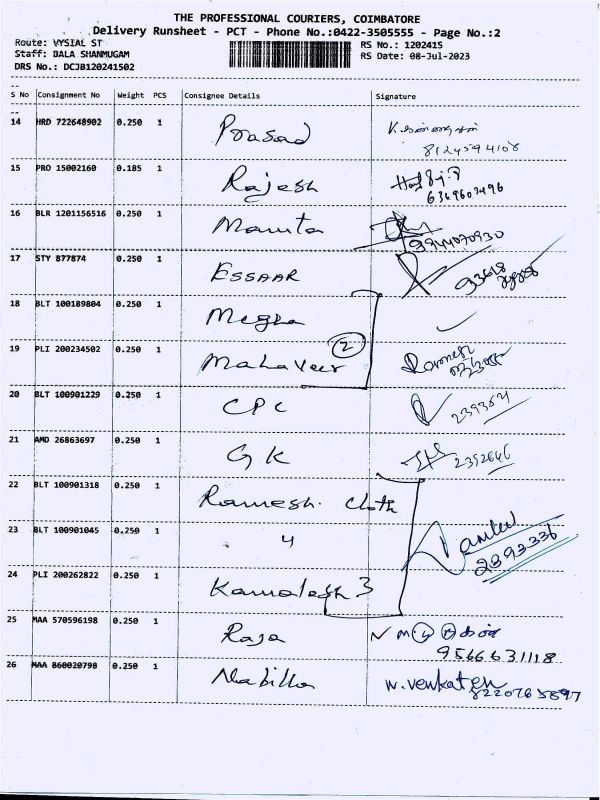 THE PROFESSIONAL COURIERS, COIMBATORE
Delivery Runsheet - PCT - Phone No.:0422-3505555 - Page No.:2
Route: VYSIAL ST
Staff: BALA SHANMUGAM
DRS No.: DCJB120241502
RS No.: 1202415
RS Date: 08-Jul-2023
S No Consignment No Weight PCS Consignee Details Signature
14 HRD 722648902 0.250 1 Prasad
8124594108
15 PRO 15002160 0.185 1 Rajesh
6369603496
16 BLR 1201156516 0.250 1 Mamta
9944070930
17 STY 877874 0.250 1 ESSAAR
93618
18 BLT 100189804 0.250 1 Megha
2
19 PLI 200234502 0.250 1 Mahaveer
Ramesh
20 BLT 100901229 0.250 1 CPC
21 AMD 26863697 0.250 1 GK
2392646
22 BLT 100901318 0.250 1 Ramesh. Cloth
23 BLT 100901045 0.250 1 "
2393336
24 PLI 200262822 0.250 1 Kamalesh 3
25 MAA 570596198 0.250 1 Raja
9566631118
26 MAA 860020798 0.250 1 Nabilla W. Venkatesh